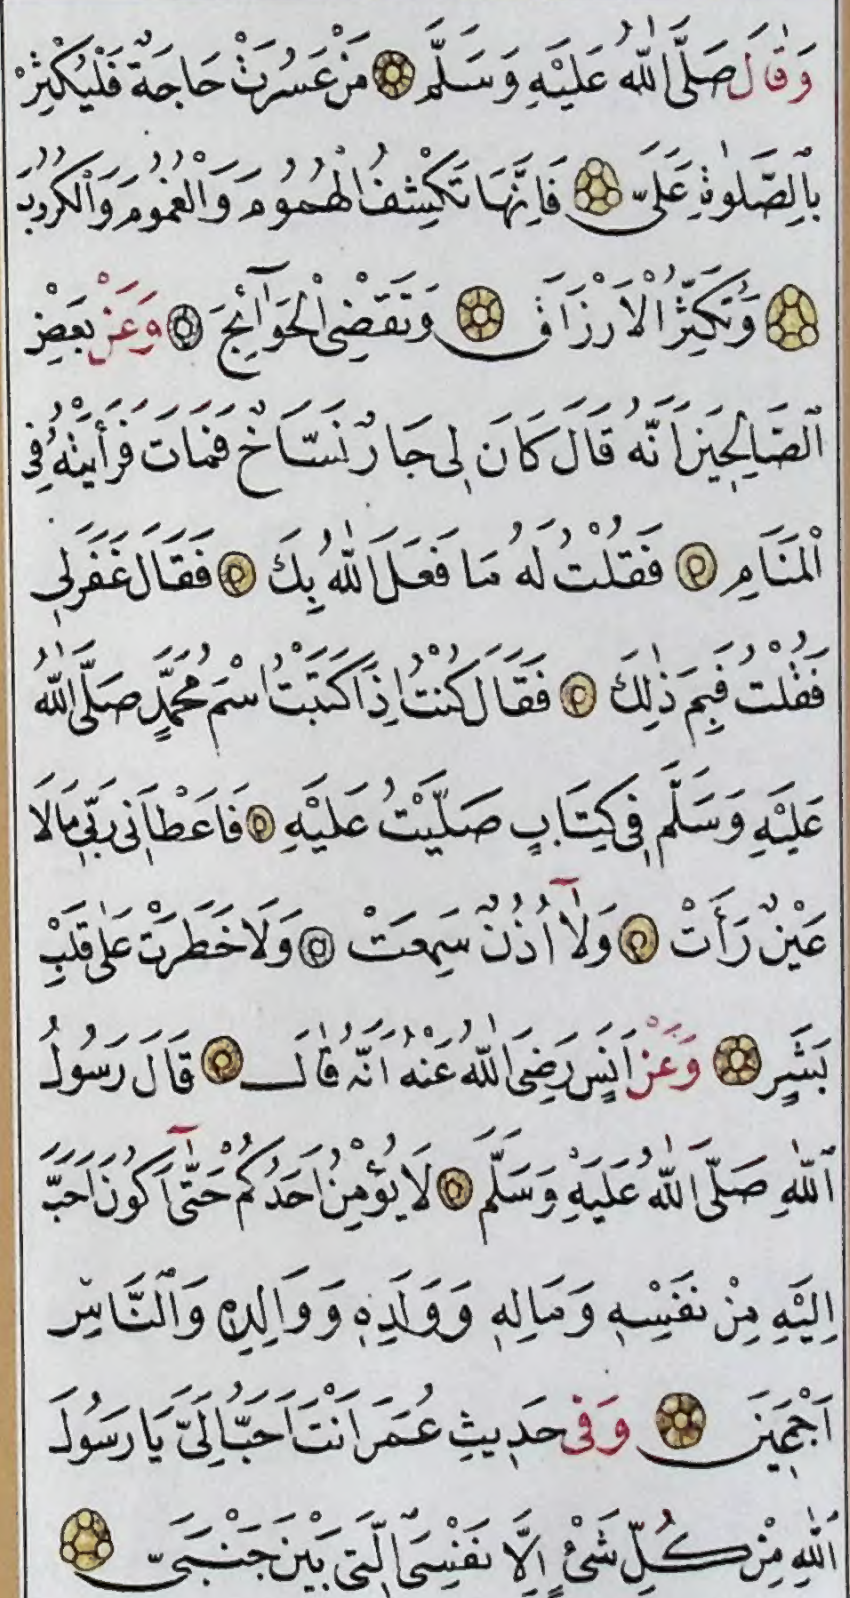 وَقَالَ صَلَّى اللّٰهُ عَلَيْهِ وَسَلَّمَ مَنْ عَسُرَتْ حَاجَةٌ فَلْيُكْثِرْ
بِالصَّلٰوةِ عَلَىَّ فَاِنَّهَا تَكْشِفُ الْهُمُومَ وَالْغُمُومَ وَالْكُرُوبَ
وَتُكَثِّرُ الْاَرْزَاقَ وَتَقْضِى الْحَوَآئِجَ وَعَنْ بَعْضِ
الصَّالِحِينَ اَنَّهُ قَالَ كَانَ لِى جَارٌ نَسَّاخٌ فَمَاتَ فَرَأَيْتُهُ فِى
الْمَنَامِ فَقُلْتُ لَهُ مَا فَعَلَ اللّٰهُ بِكَ فَقَالَ غَفَرَ لِى
فَقُلْتُ فَبِمَ ذٰلِكَ فَقَالَ كُنْتُ اِذَا كَتَبْتُ اسْمَ مُحَمَّدٍ صَلَّى اللّٰهُ
عَلَيْهِ وَسَلَّمَ فِى كِتَابٍ صَلَّيْتُ عَلَيْهِ فَاَعْطَانِى رَبِّى مَالَا
عَيْنٌ رَأَتْ وَلَآ اُذُنٌ سَمِعَتْ وَلَا خَطَرَتْ عَلٰى قَلْبِ
بَشَرٍ وَعَنْ اَنَسٍ رَضِىَ اللّٰهُ عَنْهُ اَنَّهُ قَالَ قَالَ رَسُولُ
اللّٰهِ صَلَّى اللّٰهُ عَلَيْهِ وَسَلَّمَ لَا يُؤْمِنُ اَحَدُكُمْ حَتّٰٓى اَكُونَ اَحَبَّ
اِلَيْهِ مِنْ نَفْسِهِ وَمَالِهِ وَوَلَدِهِ وَوَالِدِهِ وَالنَّاسِ
اَجْمَعِينَ وَفِى حَدِيثِ عُمَرَ اَنْتَ اَحَبُّ اِلَىَّ يَا رَسُولَ
اللّٰهِ مِنْ كُلِّ شَىْءٍ اِلَّا نَفْسِىَ الَّتِى بَيْنَ جَنْبَىَّ